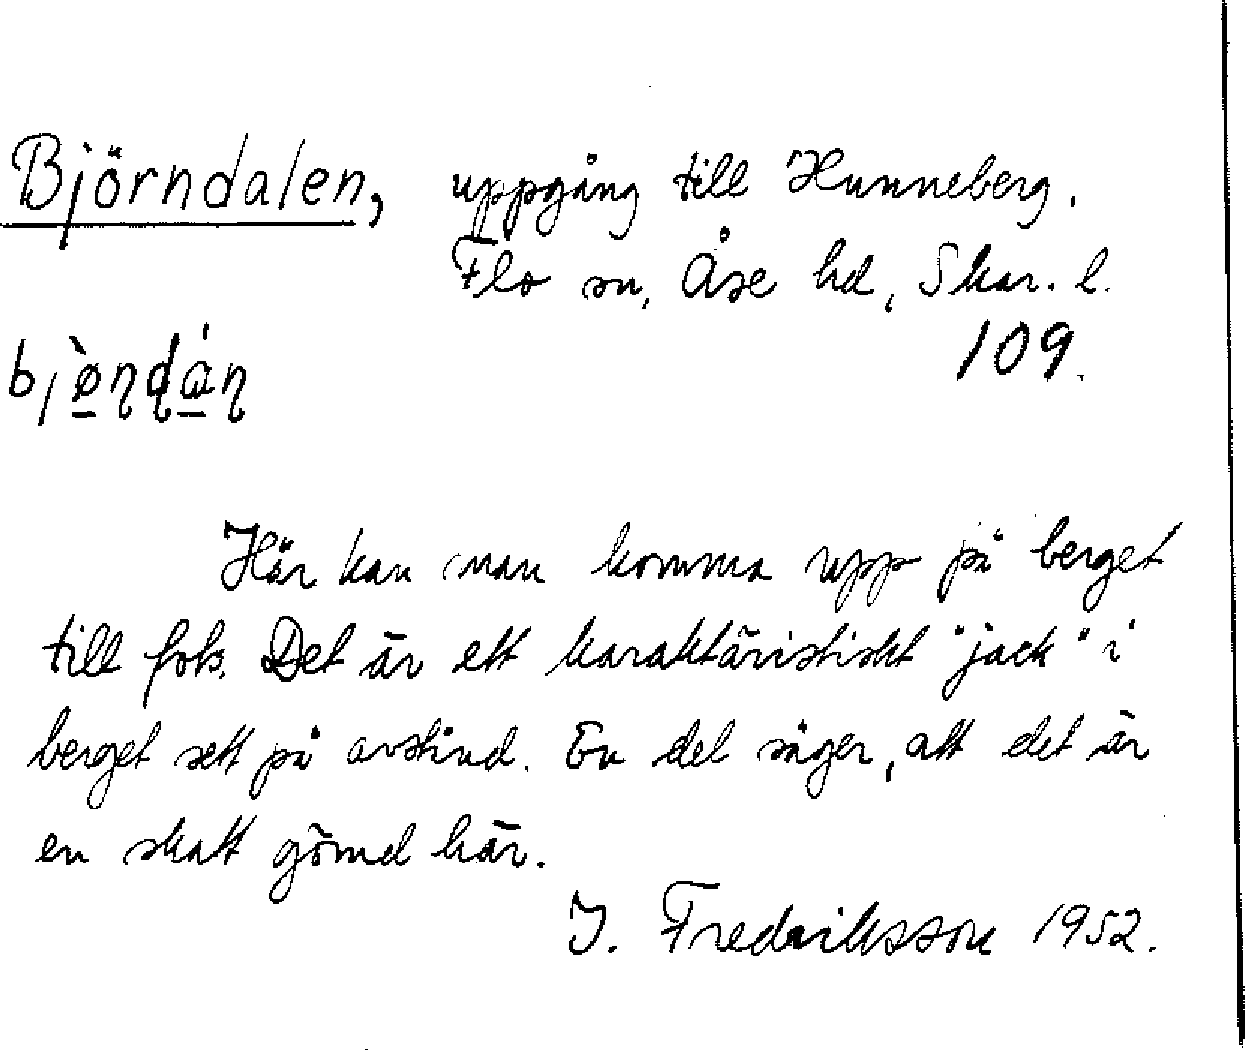 Björndalen, uppgång till Hunneberg.
Flo sn, Åse hd, Skar. l.
109.
bjø̀ɳɖáɳ
Här kan man komma upp på berget
till fots. Det är ett karaktäristiskt "jack" i
berget sett på avstånd. En del säger, att det är
en skatt gömd här.
I. Fredriksson 1952.